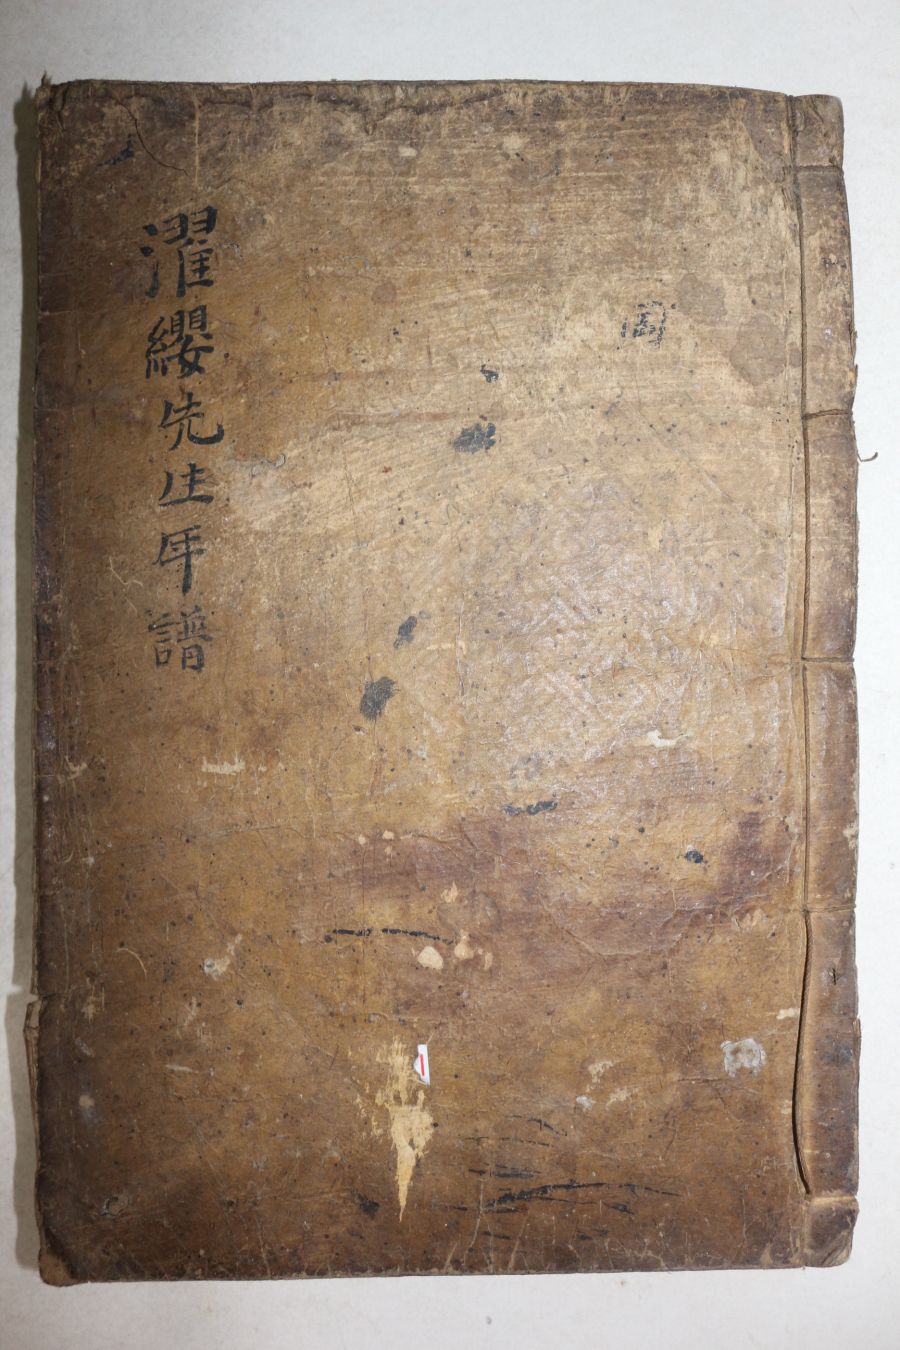 濯纓先生年譜